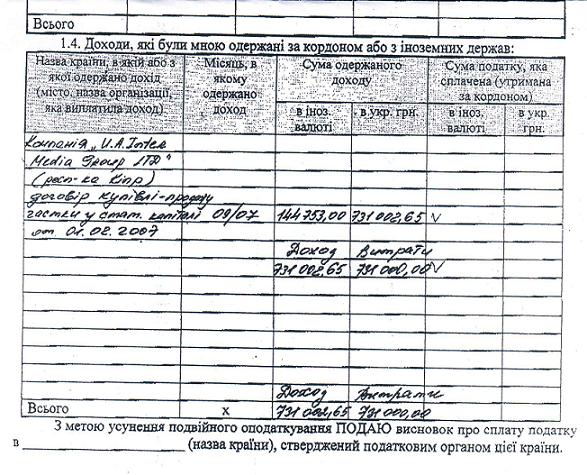 Всього
1.4. Доходи, які були мною одержані за кордоном або з іноземних держав:
Назва країни, в якій або з якої одержано дохід (місто, назва організації, яка виплатила доход)
Місяць, в якому одержано доход
Сума одержаного доходу
Сума податку, яка сплачена (утримана за кордоном)
в іноз. валюті
в укр. грн.
в іноз. валюті
в укр. грн:
Компанія „U.A. Inter
Media Group LTD"
(респ-ка Кіпр)
договір купівлі-продажу
частки у стат. капіталі 09/07 144 753,00 731 002,65 V
от 01.02.2007
Доход Витрати
731 002,65 731 000,00 V
Доход Витрати
Всього х 731 002,65 731 000,00
З метою усунення подвійного оподаткування ПОДАЮ висновок про сплату податку
в ____________________ (назва країни), стверджений податковим органом цієї країни.